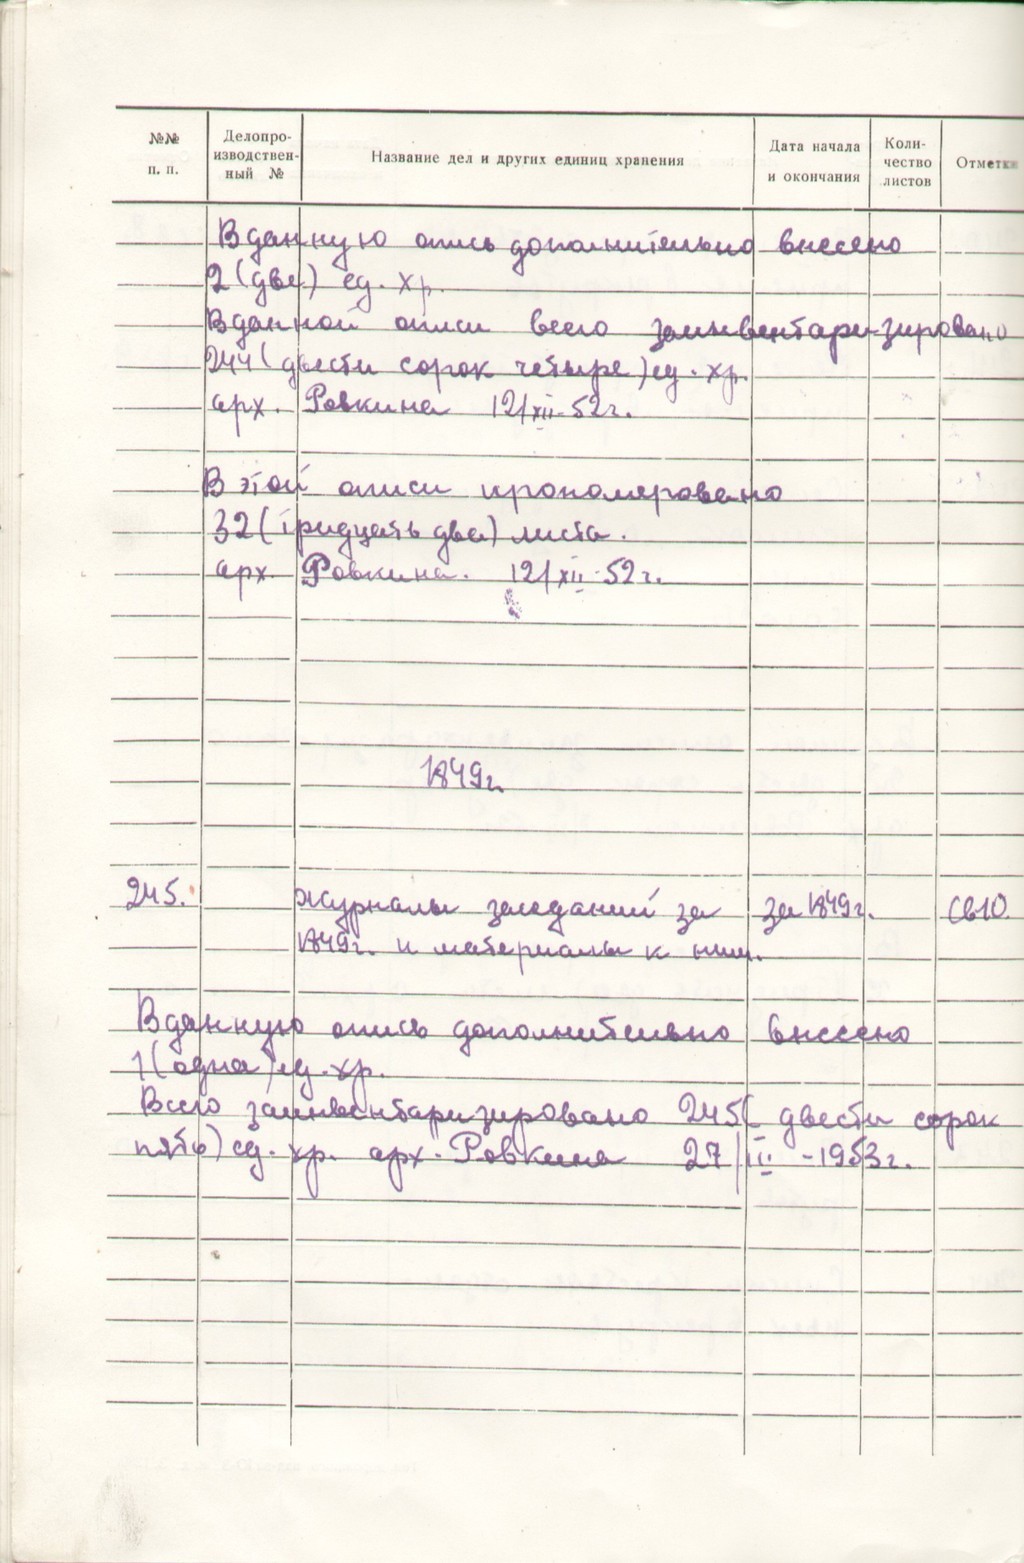 №№ п. п.
Делопро-
изводствен-
ный №
Название дел и других единиц хранения
Дата начала
и окончания
Коли-
чество
листов
Отметки
В данную опись дополнительно внесено
2 (две) ед. хр.
В данной описи всего заинвентаризировано
244 (двести сорок четыре) ед. хр.
арх. Ровкина 12/XII-52г.
В этой описи пронумеровано
32 (тридцать два) листа.
арх. Ровкина. 12/XII-52г.
1849г.
245. Журналы заседаний за за 1849г. Св10.
1849г. и материалы к ним.
В данную опись дополнительно внесено
1 (одна) ед. хр.
Всего заинвентаризировано 245 (двести сорок
пять) ед. хр. арх. Ровкина 27/III-1953г.